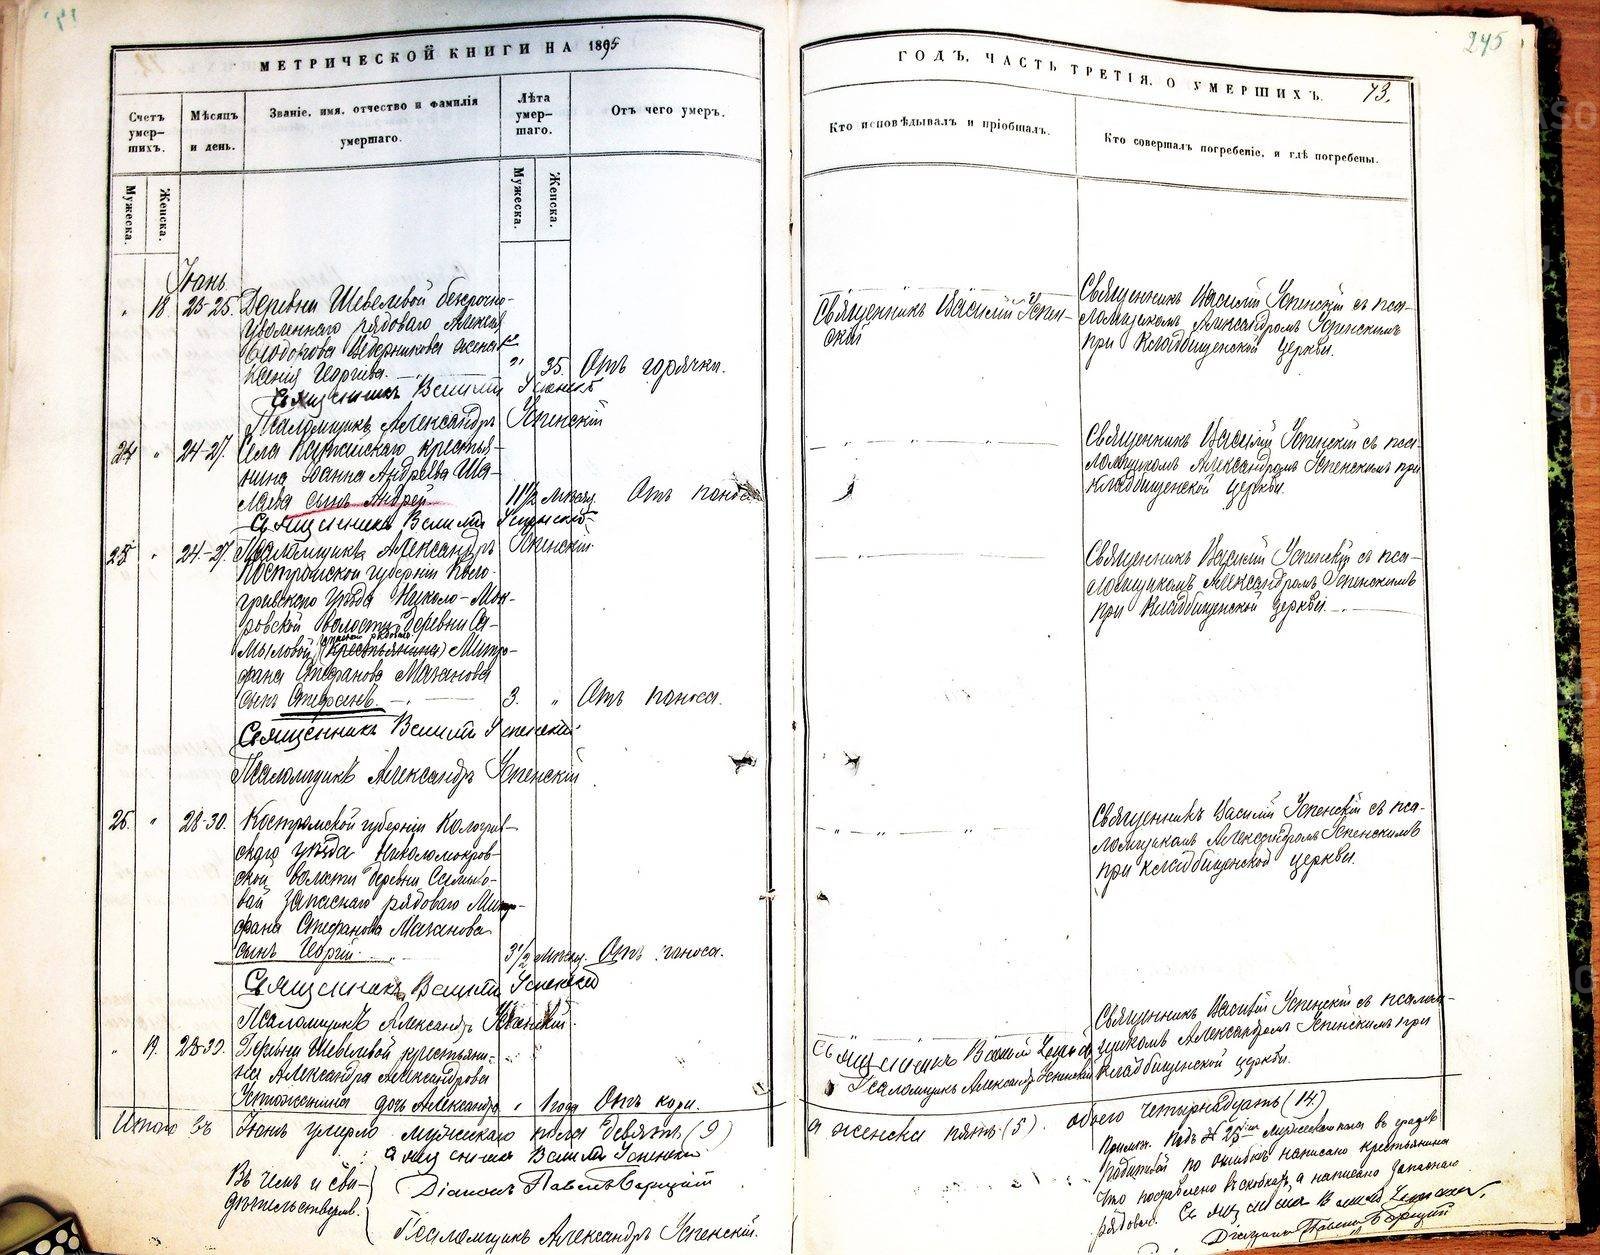 МЕТРИЧЕСКОЙ КНИГИ НА 1895
Счетъ умер-
шихъ.
Мужеска.
Женска.
Мѣсяцъ
и день.
Званіе, имя, отчество и фамилія
умершаго.
Лѣта
умер-
шаго.
Мужеска.
Женска.
Отъ чего умеръ.
Іюнь
18 23-25. Деревни Шевелевой безсрочно-
рядоваго Алексія
жена
Ксенія
35. Отъ горячки.
Священникъ Василій Успенскій
Псаломщикъ Александръ Успенскій
24 " 24-27. Села крестья-
нина Іоанна Андреева
сынъ Андрей. 11 1/2 мѣсяц. Отъ поноса
Священникъ Василій Успенскій
Псаломщикъ Александръ Успенскій
25 " 24-27.
Костромской губерніи Коло-
гривскаго уѣзда Николо-Мок-
ровской волости деревни
запасн рядоваго
(крестьянина) Митро-
фана Стефанова Маханова
сынъ Стефанъ. 3. " Отъ поноса.
Священникъ Василій Успенскій
Псаломщикъ Александръ Успенскій
26. " 28-30. Костромской губерніи Кологрив-
скаго уѣзда Николомокров-
ской волости деревни
запаснаго рядоваго Митро-
фана Стефанова Маханова
сынъ Георгій. 3 1/2 мѣсяц. Отъ поноса.
Священникъ Василій Успенскій
Псаломщикъ Александръ Успенскій
" 19. 28-30. Деревни Шевелевой крестьяни-
на Александра Александрова
дочь Александра " 1 года Отъ кори.
Итого въ Іюнѣ умерло мужескаго пола девять (9)
Священникъ Василій Успенскій
Въ чемъ и сви-
дѣтельствуемъ.
Діаконъ Павелъ
Псаломщикъ Александръ Успенскій.
245
ГОДЪ, ЧАСТЬ ТРЕТІЯ, О УМЕРШИХЪ. 73.
Кто исповѣдывалъ и пріобщалъ.
Кто совершалъ погребеніе, и гдѣ погребены.
Священникъ Василій Успен-
скій
Священникъ Василій Успенскій съ пса-
ломщикомъ Александромъ Успенскимъ
при Кладбищенской церкви.
Священникъ Василій Успенскій съ пса-
ломщикомъ Александромъ Успенскимъ при
кладбищенской церкви.
Священникъ Василій Успенскій съ пса-
ломщикомъ Александромъ Успенскимъ
при Кладбищенской церкви.
Священникъ Василій Успенскій съ пса-
ломщикомъ Александромъ Успенскимъ
при кладбищенской церкви.
Священникъ Василій Успенскій съ псалом-
щикомъ Александромъ Успенскимъ при
Кладбищенской церкви.
Священникъ Василій Успенскій
Псаломщикъ Александръ Успенскій
а женска пять (5). обоего четырнадцать (14.)
Примѣч. Подъ № 25 мужескаго пола въ графѣ
по ошибкѣ написано крестьянина
что поставлено въ скобкахъ, а написано запаснаго
рядоваго. Священникъ Василій Успенскій.
Діаконъ Павелъ